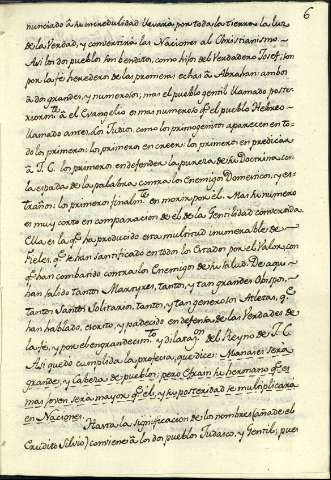 6
nunciado à su incredulidad llevara por toda la tierra la luz
de la Verdad, y convertirà las Naciones al Christianismo.
Asi los dos pueblos son benditos, como hijos del Verdadero Josef, son
por la fe herederos de las promesas echas à Abrahan: ambos
à dos grandes, y numerosos; mas el pueblo gentil llamado poster
riorm.te à el Evangelio es mas numeroso q.e el pueblo Hebreo
llamado antes. Los Judios como los primogenitos aparecen en to-
do los primeros: los primeros en creer: los primeros en predicar
à J. C. los primeros en defender la pureza de su Doctrina con
la espada de la palabra contra los Enemigos Domesticos, y es-
traños: los primeros finalm.te en morir por el. Mas su numero
es muy corto en comparacion de el de la Gentilidad convertida.
Ella es la q.e ha producido esta multitud innumerable de
fieles, q.e se han santificado en todos los Estados por el Valor, con
q.e han combatido contra los Enemigos de su salud. De aqui
han salido tantos Martyres, tantos, y tan grandes Obispos,
tantos Santos Solitarios, tantos, y tan generosos Atletas, q.e
han hablado, escrito, y padecido en defensa de las Verdades de
la fè, y por el engrandecim.to y dilataz.on del Reyno de J. C.
Asi quedo cumplida la profecia, que dice: Manases serà
grande, y Cabeza de pueblos; pero Efrain su hermano q.e es
mas joven serà mayor q.e el, y su posteridad se multiplicarà
en Naciones.
Hasta la significacion de los nombres (añade el
Erudito Silvio) conviene à los dos pueblos Judaico, y Gentil; pues